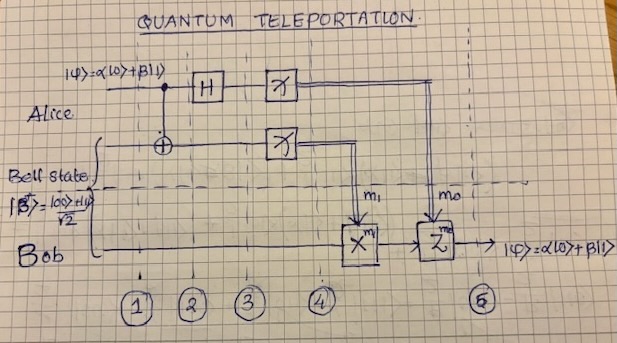 QUANTUM TELEPORTATION.
|ψ>=α|0>+β|1>
H
Alice
Bell state
|β>=|00>+|11>/√2
m₁
m₀
Bob
X^m₁
Z^m₀
|ψ>=α|0>+β|1>
1
2
3
4
5